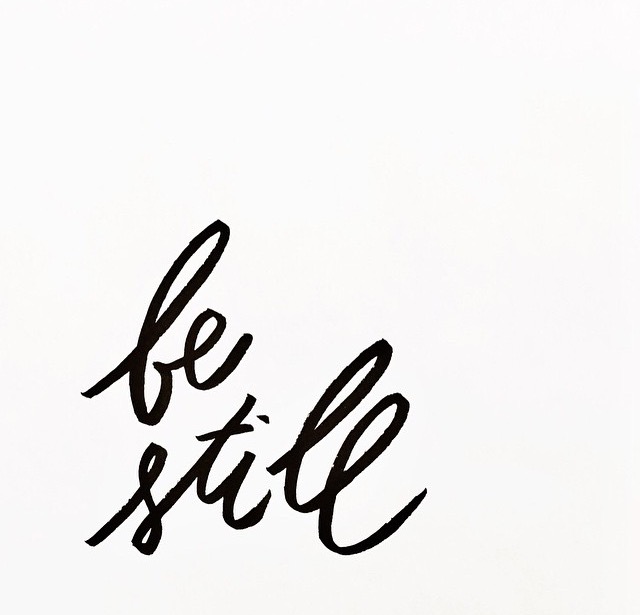 be
still